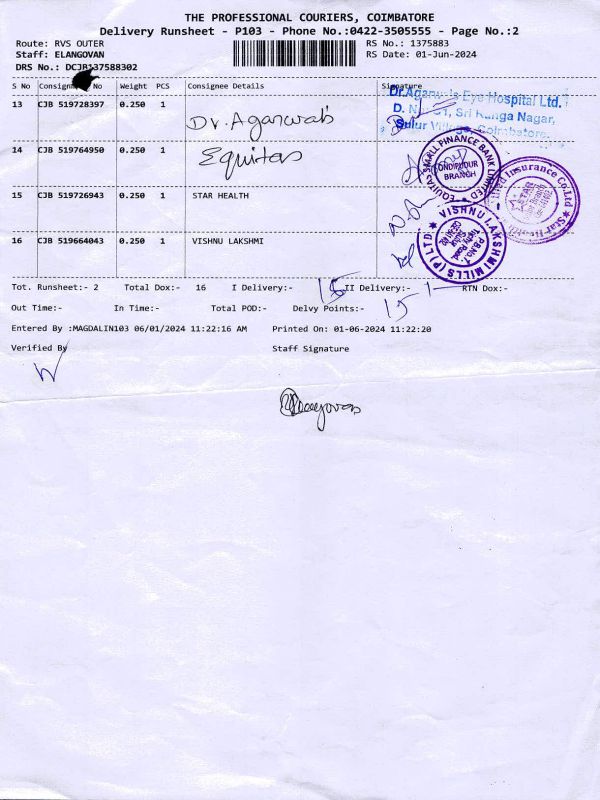 THE PROFESSIONAL COURIERS, COIMBATORE
Delivery Runsheet - P103 - Phone No.:0422-3505555 - Page No.:2
Route: RVS OUTER RS No.: 1375883
Staff: ELANGOVAN RS Date: 01-Jun-2024
DRS No.: DCJB137588302
S No Consign No Weight PCS Consignee Details Signature
13 CJB 519728397 0.250 1 Dr. Agarwal's
Dr.Agarwal's Eye Hospital Ltd.
Sri Ranga Nagar,
Sulur Village, Coimbatore.
14 CJB 519764950 0.250 1 Equitas
EQUITAS SMALL FINANCE BANK LIMITED
ONDIPUDUR
BRANCH
15 CJB 519726943 0.250 1 STAR HEALTH
Insurance Co.Ltd
STAR
16 CJB 519664043 0.250 1 VISHNU LAKSHMI
VISHNU LAKSHMI MILLS (P) LTD
P.B.No.1
Trichy Road,
Tot. Runsheet:- 2 Total Dox:- 16 I Delivery:- 15 II Delivery:- 1 RTN Dox:-
Out Time:- In Time:- Total POD:- Delvy Points:- 15
Entered By :MAGDALIN103 06/01/2024 11:22:16 AM Printed On: 01-06-2024 11:22:20
Verified By Staff Signature
Elangovan